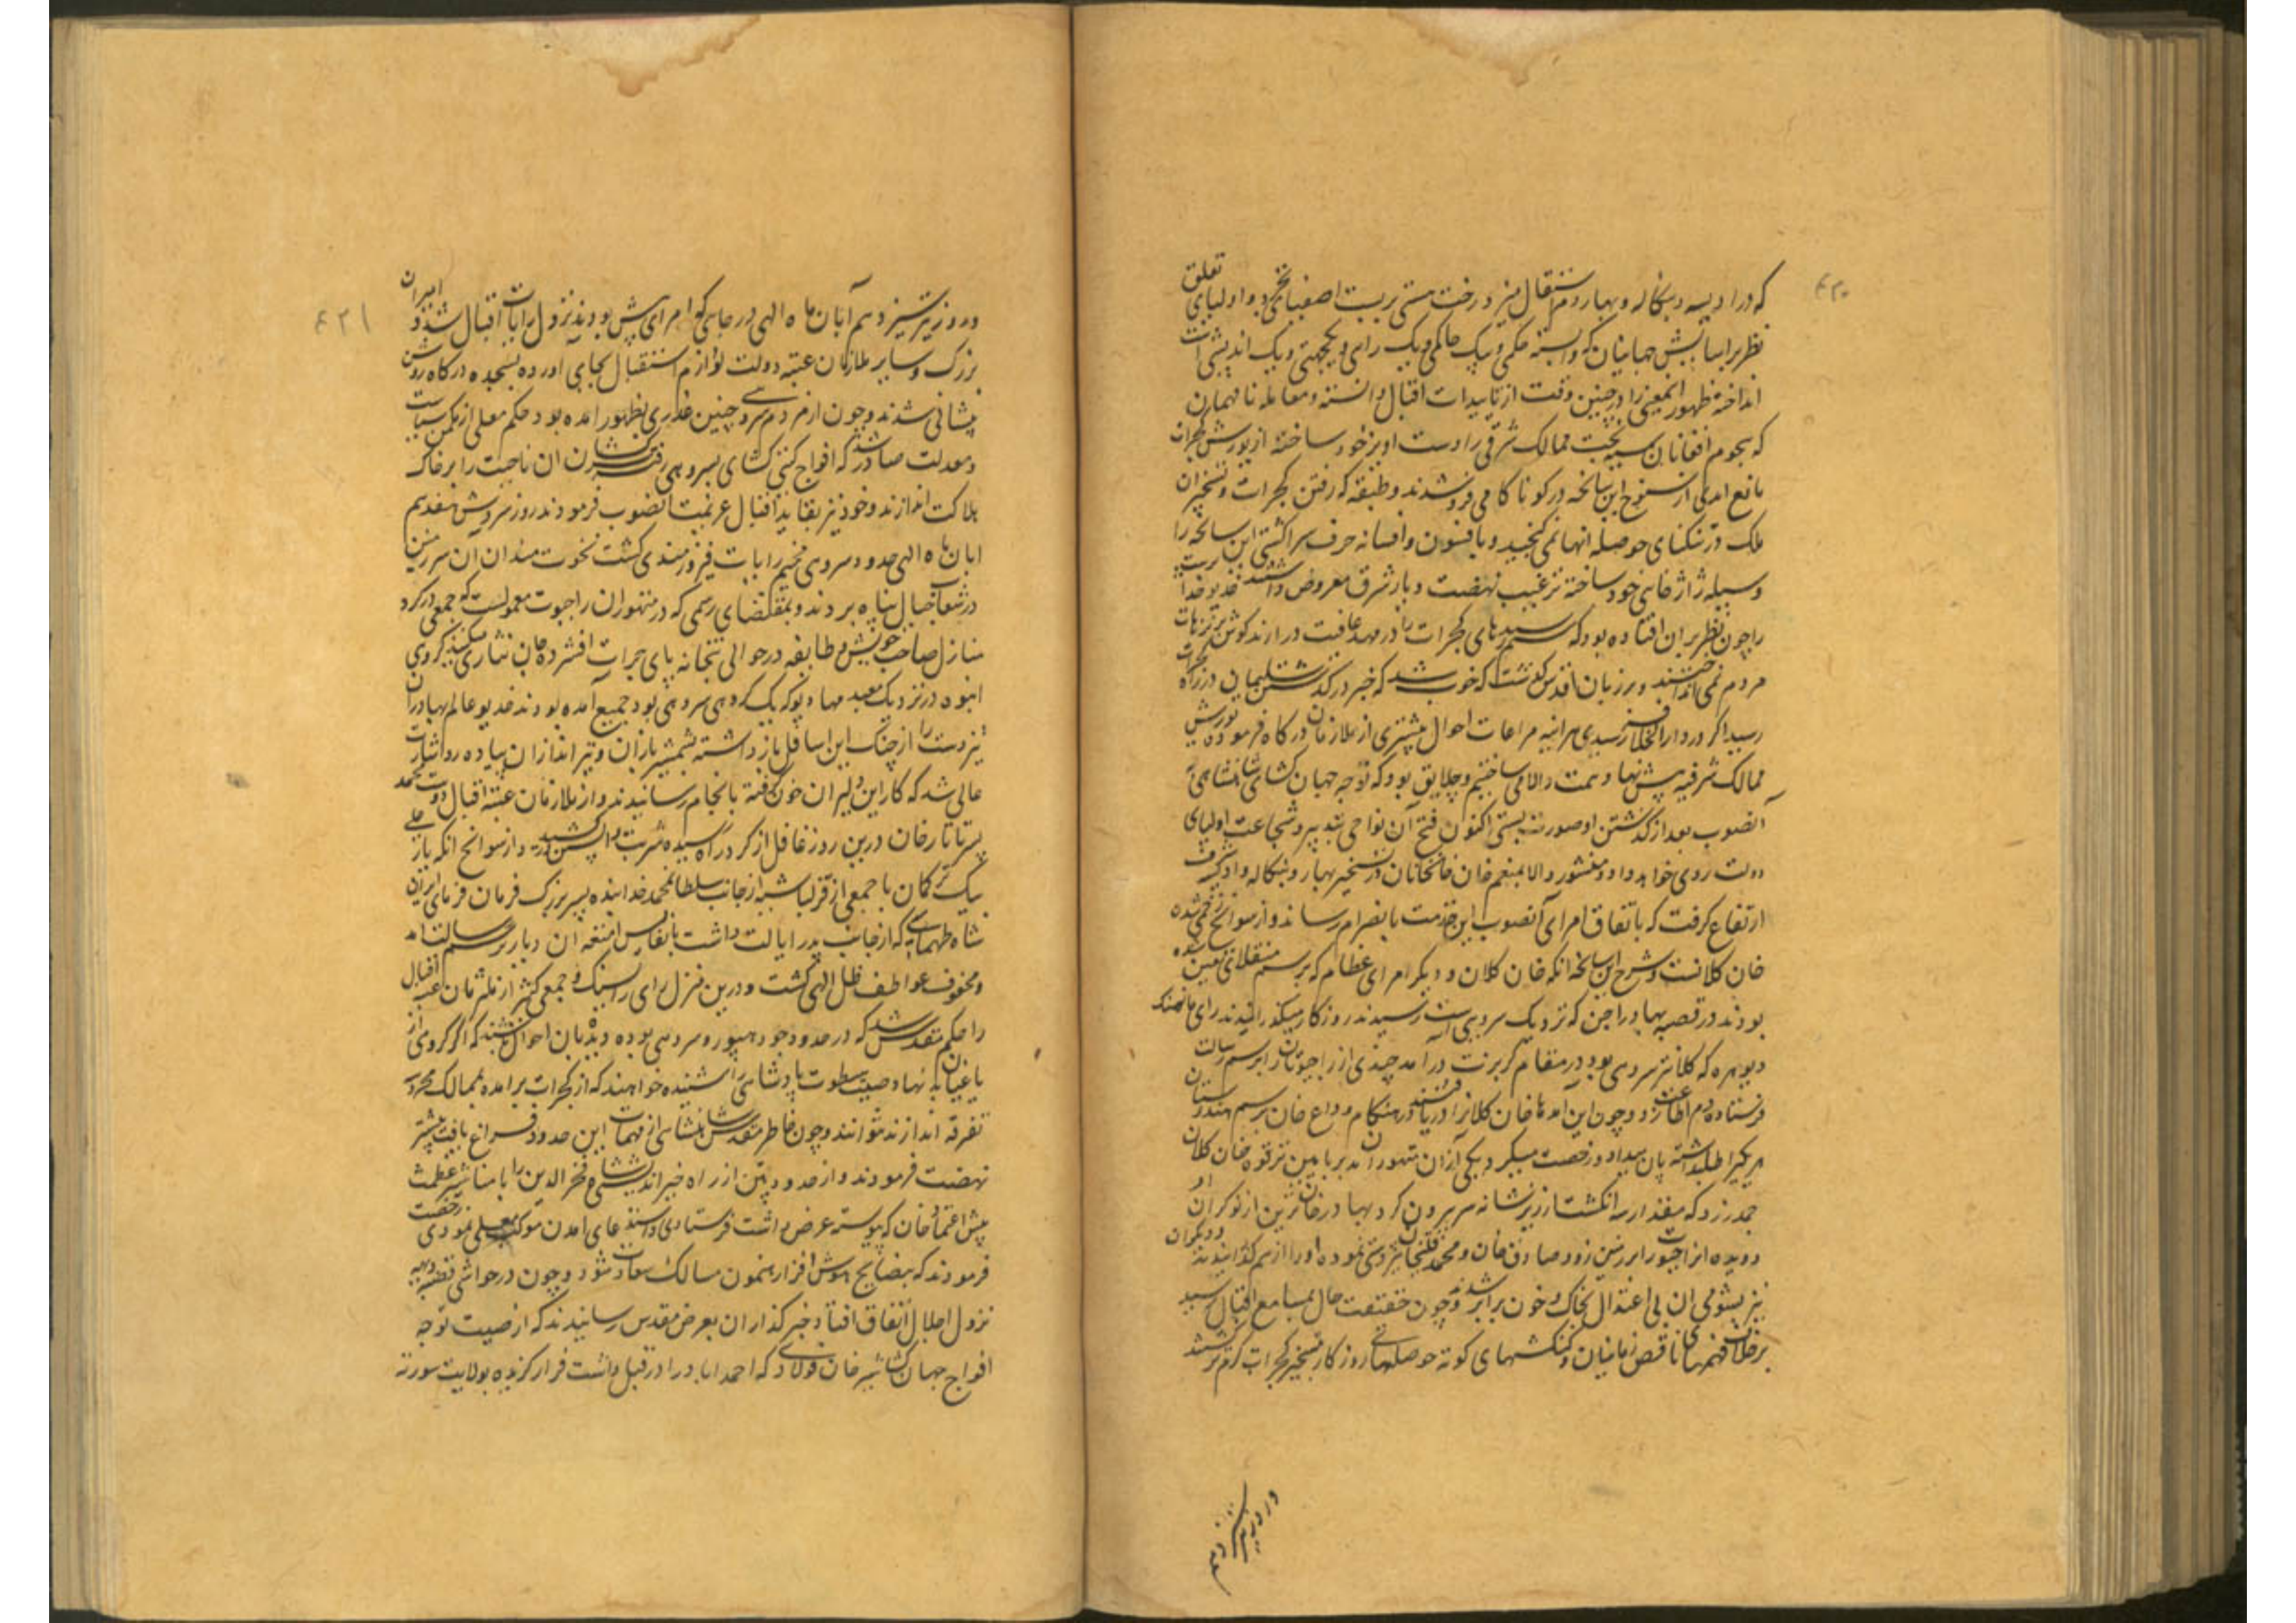 ۴۲۰
که در اودیسه و بنگاله و بهار دم استقلال میزد رخت هستی بربست اصغیای تخرد و اولیای تعلق
نظر بر آسایش جهانیان که وابسته حکمی و بیک حاکمی و یک رای و یکجهتی و یک اندیشی است
انداخته ظهور اینمعنی را در چنین وقت از تاییدات اقبال دانسته و معامله نافهمان
که هجوم افغانان سیه بخت ممالک شرقی را دست اویز خود ساخته از یورش گجرات
مانع امدی از سنوح این سانحه در کو ناکامی فرو شدند و طبقه که رفتن گجرات و تسخیر ان
ملک در تنکنای حوصله انها نمی گنجید و بافسون و افسانه حرف سراکشتی این سانحه را
وسیله ژاژخایی خود ساخته ترغیب نهضت دیار شرق معروض داشتند خدیو خدا پرست
را چون نظر بر ان افتاده بود که ستم رسیدهای گجرات را در مهد عافیت در ارند گوش بر ترهات
مردم نمی انداختند و بر زبان اقدس گذشت که خوب شد که خبر در گذشتن سلیمان در راه گجرات
رسید اگر در دارالخلافه رسیدی هراینه مراعات احوال بیشتری از ملازمان درگاه فرموده یورش
ممالک شرقیه پیش نهاد همت والا می ساختیم و چه لایق بود که توجه جهان گشای شاهنشاهی
آنصوب بعد از گذشتن او صورت بستی اکنون فتح آن نواحی به شجاعت اولیای
دولت روی خواهد داد و منشور والا بمنعم خان خانخانان در تسخیر بهار و بنگاله و ادیسه شرف
ارتفاع گرفت که باتفاق امرای آنصوب این خدمت بانصرام رساند و از سوانح زخمی شدن
خان کلانست و شرح این سانحه انکه خان کلان و دیگر امرای عظام که برسم منقلای تعین شده
بودند در قصبه بهادراجن که نزدیک سروهی است رسیدند روزکار میگذرانیدند رای مانسنگ
دیوهره که کلانتر سروهی بود در مقام گربزت درآمد چندی از راجپوتان را برسم رسالت
فرستاده دم اطاعت زد و چون این آمدها خان کلانرا دریافتند در هنگام وداع خان برسم هندوستان
هر یکی را طلبداشته پان میداد و رخصت میکرد یکی از آن متهوران مدبر بایین ترقوه خان کلان
جمدر زد که مقدار سه انگشت از زیر شانه سر بیرون کرد بهادرخان نزدین از نوکران او
دویده انراجپوت را بر زمین زد و صادق خان و محمد قلیخان تیزدستی نموده او را از هم گذرانیدند و دیگران
نیز بشومی ان بی اعتدال بخاک و خون برابر شدند و چون حقیقت حال بمسامع اقبال رسید
برخلاف فهمهای ناقص زمانیان و کنکشهای کوته حوصلهای روزکار تسخیر گجرات گرم تر شدند
در روز تیر سیزدهم
۴۲۱
در روز تیر سیزدهم آبان ماه الهی در جایی که امرای پیش بودند نزول رایات اقبال شد و امیران
بزرگ و سایر ملازمان عتبه دولت لوازم استقبال بجای اورده بسجده درگاه روشن
پیشانی شدند و چون از مردم سروهی چنین غدری بظهور امده بود حکم معلی از مکمن سیاست
و معدلت صادر شد که افواج گیتی کشای بسروهی رفته سرکشان ان ناحیت را بر خاک
هلاکت اندازند و خود نیز بقاید اقبال عزیمت انصوب فرمودند روز سروش هفدهم
ابان ماه الهی حدود سروهی مخیم رایات فیروزمندی گشت نخوت مندان آن سرزمین
در شعاب جبال پناه بردند و بمقتضای رسمی که در متهوران راجپوت معمولست که جمعی در گرد
منازل صاحب خویش و طایفه در حوالی بتخانه پای جرات افشرده جان نثاری میکنند گروهی
انبوه در نزدیک معبد مهادیو که یک کروهی سروهی بود جمیع آمده بودند خدیو عالم بهادران
تیزدست را از جنگ این اسافل باز داشته بشمشیر بازان و تیراندازان پیاده رو اشارت
عالی شد که کار این دلیران خون گرفته بانجام رسانیدند و از ملازمان عتبه اقبال دوست محمد
پسر تاتارخان درین روز غافل از گرد راه رسیده شربت واپسین در کشید و از سوانح انکه یار علی
بیک ترکمان با جمعی از قزلباش از جانب سلطان محمد خدابنده پسر بزرگ فرمان فرمای ایران
شاه طهماسپ که از جانب پدر ایالت داشت بانفایس امتعه ان دیار برسم رسالت امد
و محفوف عواطف ظل الهی گشت و درین منزل رای رایسنگ و جمعی کثیر از ملتزمان عتبه اقبال
را حکم مقدس شد که در حدود جودهپور و سروهی بوده دیدبان احوال باشند که اگر گروهی از
یاغیان به نهاد صیت سطوت پادشاهی را شنیده خواهند که از گجرات برامده بممالک محروسه
تفرقه اندازند نتوانند و چون خاطر مقدس شاهنشاهی از مهمات این حدود فراغ یافت پیشتر
نهضت فرمودند و از حدود پتن از راه خیر اندیشی شاه فخرالدین را با مناشیر عظمت
پیش اعتماد خان که پیوسته عرض داشت فرستادی و استدعای امدن موکب معلی نمودی رخصت
فرمودند که بنصایح هوش افزا رهنمون مسالک سعادت شود و چون در حواشی قصبه دیسه
نزول اجلال اتفاق افتاد خبر گذاران بعرض مقدس رسانیدند که از صیت توجه
افواج جهان گشا شیرخان فولادی که احمداباد را در قبل داشت فرار گزیده بولایت سورته